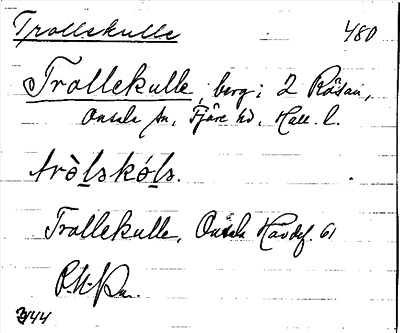 Trollekulle 480
Trollekulle, berg; 2 Råsan,
Onsala sn, Fjäre hd. Hall. l.
tròlskóls.
Trollekulle, Onsala Havdef. 61
1944